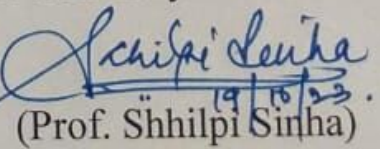 Shhilpi Sinha
19/10/23.
(Prof. Shhilpi Sinha)